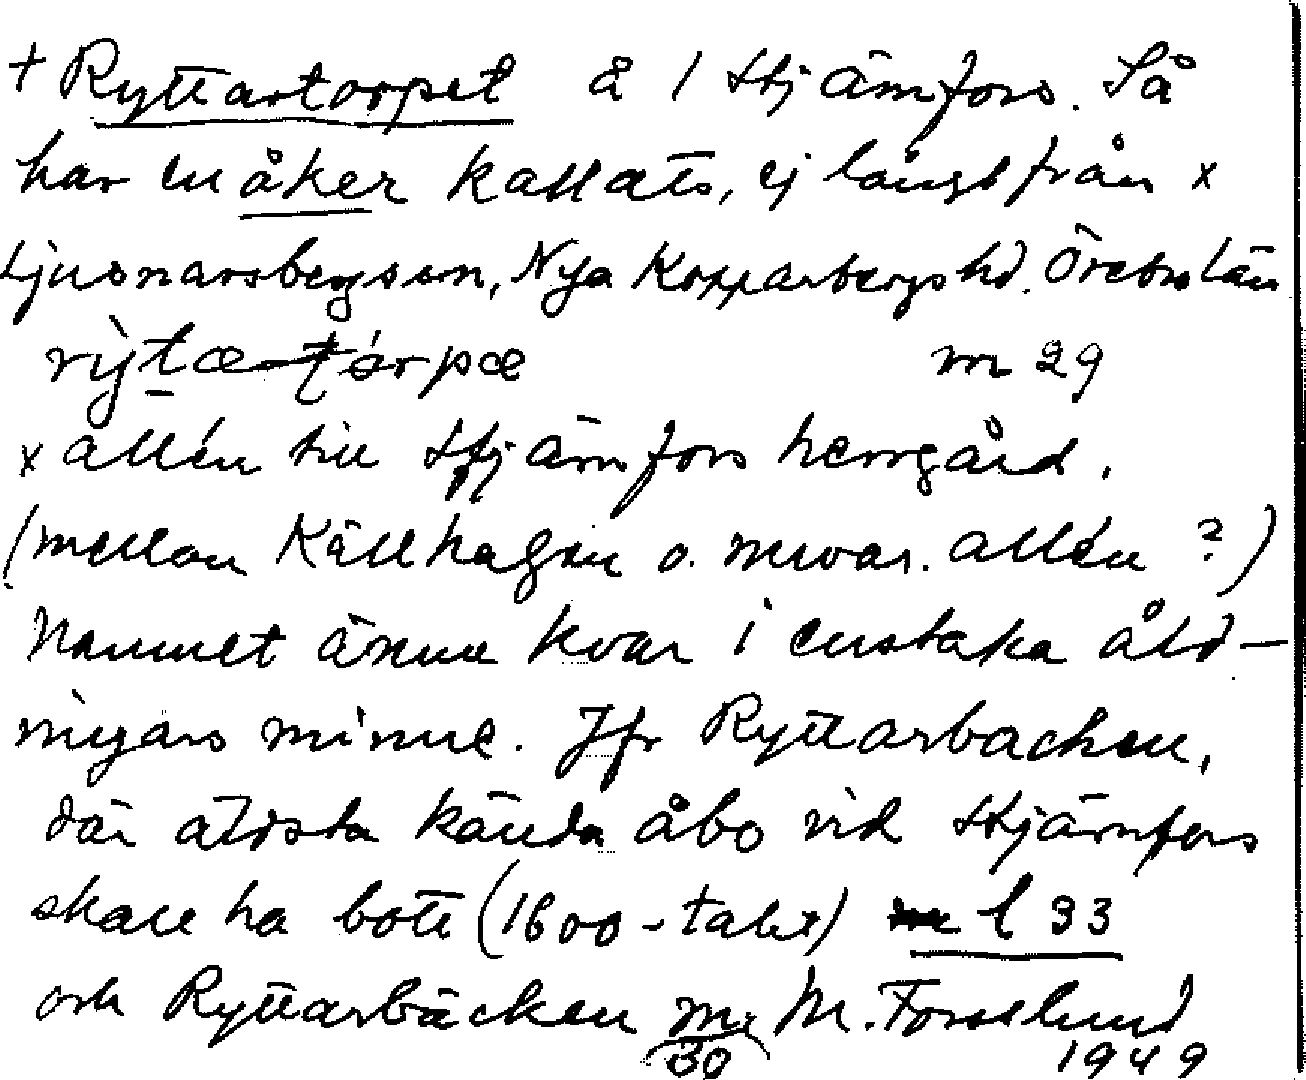 + Ryttartorpet å 1 Stjärnfors. Så
har en åker kallats, ej långt från x
Ljusnarsbergs sn, Nya Kopparbergs hd. Örebro län
rỳtæ-tórpæ m 29
x allén till Stjärnfors herrgård.
(mellan Källhagen o. nuvar. allén ?)
Namnet ännu kvar i enstaka åld-
ningars minne. Jfr Ryttarbacken,
där äldsta kända åbo vid Stjärnfors
skall ha bott (1600-talet) l 33
och Ryttarbäcken m. M. Forslund
30 1949